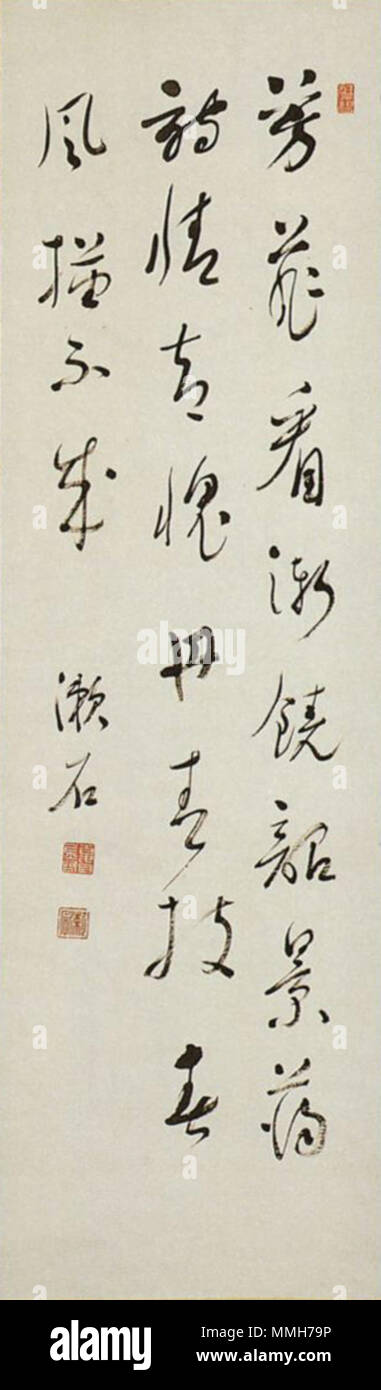 芳菲看漸饒韶景蕩
詩情却愧丹青技春
風描不成
漱石
alamy
alamy
Image ID: MMH79P
www.alamy.com